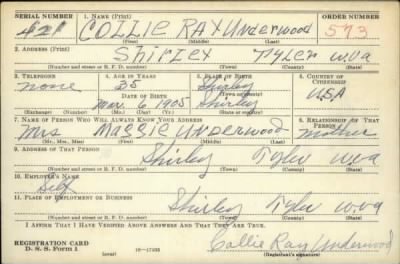 SERIAL NUMBER 1. NAME (Print) ORDER NUMBER
421 COLLIE RAY Underwood 573
(First) (Middle) (Last)
2. ADDRESS (Print)
Shirley Tyler W.Va
(Number and street or R. F. D. number) (Town) (County) (State)
3. TELEPHONE 4. AGE IN YEARS 5. PLACE OF BIRTH 6. COUNTRY OF CITIZENSHIP
none 35 Shirley
DATE OF BIRTH (Town or county) USA
Mar. 6 1905 Shirley
(Exchange) (Number) (Mo.) (Day) (Yr.) (State or country)
7. NAME OF PERSON WHO WILL ALWAYS KNOW YOUR ADDRESS 8. RELATIONSHIP OF THAT PERSON
Mrs Maggie Underwood mother
(Mr., Mrs., Miss) (First) (Middle) (Last)
9. ADDRESS OF THAT PERSON
Shirley Tyler W va
(Number and street or R. F. D. number) (Town) (County) (State)
10. EMPLOYER'S NAME
Self
11. PLACE OF EMPLOYMENT OR BUSINESS
Shirley Tyler W.Va
(Number and street or R. F. D. number) (Town) (County) (State)
I AFFIRM THAT I HAVE VERIFIED ABOVE ANSWERS AND THAT THEY ARE TRUE.
REGISTRATION CARD
D. S. S. Form 1 (over) Collie Ray Underwood
(Registrant's signature)